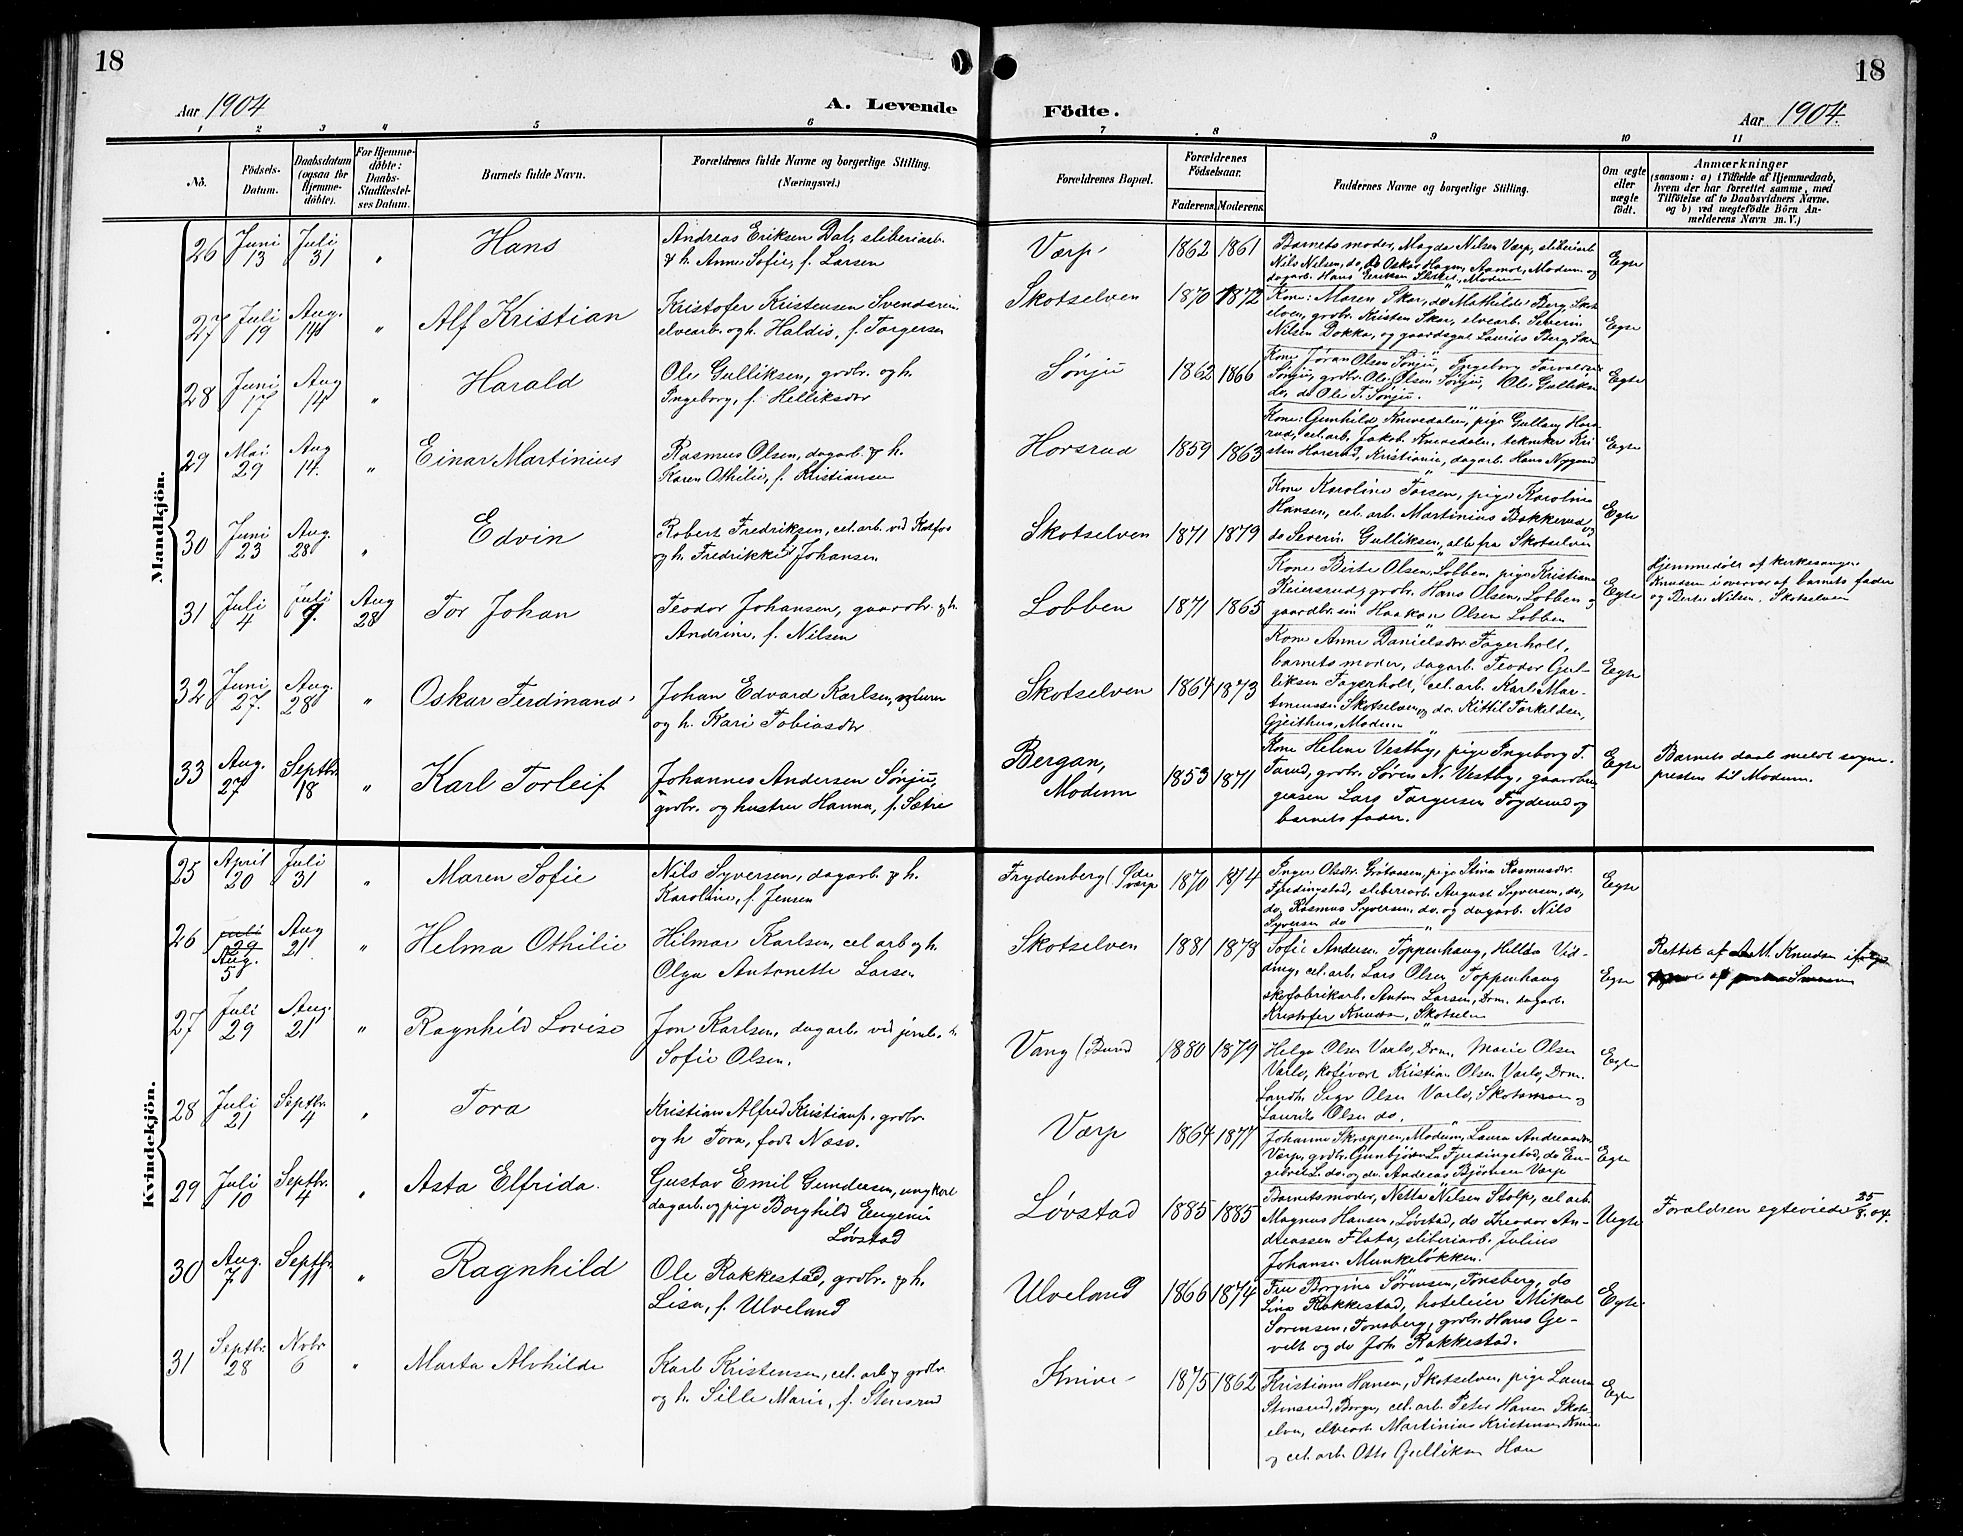 18
18
Aar 1904
A. Levende
Födte.
Aar 1904.
1 2 3 4 5 6 7 8 9 10 11
No.
Födsels-
Datum.
Daabsdatum
(ogsaa for
Hjemme-
döbte).
For Hjemme-
döbte:
Daabs-
Stadfæstel-
ses Datum.
Barnets fulde Navn.
Forældrenes fulde Navne og borgerlige Stilling.
(Næringsvei.)
Forældrenes Bopæl.
Forældrenes
Födselsaar.
Faderens. Moderens.
Faddernes Navne og borgerlige Stilling.
Om ægte
eller
uægte
födt.
Anmærkninger
(saasom: a) i Tilfælde af Hjemmedaab,
hvem der har forrettet samme, med
Tilföielse af to Daabsvidners Navne.
og b) ved uægtefödte Börn An-
melderens Navn m. V.)
Mandkjön.
26 Juni 13 Juli 31 " Hans
Andreas Eriksen Dal, sliberiarb.
& h. Anne Sofie, f. Larsen
Værp 1862 1861
Barnets moder, Magda Nilsen Værp, sliberiarb
Nils Nilsen, do, Oskar Hagen, Aamot, Modum og
dagarb. Hans Eriksen, Modum
Egte
27 Juli 19 Aug. 14 " Alf Kristian
Kristofer Kristensen Svendsrui
elvearb. og h. Haldis, f. Torgersen
Skotselven 1870 1872
Kone: Maren Skar, do Mathilde Berg, Skots
elven, grdbr. Kristen Skar, elvearb. Severin
Nilsen Dokka, og gaardsgut Laurits Berg,
Egte
28 Juni 17 Aug 14 " Harald
Ole Gulliksen, grdbr. og h.
Ingeborg, f. Helliksdtr
Sønju 1862 1866
Kone Jøran Olsen Sønju, Ingeborg
Sønju, grdbr. Ole Olsen Sønju, Ole Gulliksen
do, do Ole T. Sønju.
Egte
29 Mai 29 Aug 14. " Einar Martinius
Rasmus Olsen, dagarb. & h.
Karen Othilie, f. Kristiansen
Horsrud 1859 1863
Kone: Gunhild Knivedalen, pige Gullaug Hors
rud, cel. arb. Jakob Knivedalen, tekniker Kri
sten Horsrud, Kristiania, dagarb. Hans Nygaard
Egte
30 Juni 23 Aug. 28 " Edvin
Robert Fredriksen, cel. arb. ved Kolfos
og h. Fredrikke f. Johansen
Skotselven 1871 1879
Kone Karoline Torsen, pige Karoline
Hansen, cel. arb. Martinius Bakkerud og
do Severin Gulliksen, alle fra Skotselven
Egte
31 Juli 4 Juli 9. Aug 28 Tor Johan
Teodor Johansen, gaardbr. og h.
Andrine, f. Nilsen
Lobben 1871 1865
Kone Birte Olsen Lobben, pige Kristiane
Keiersrud, grdbr. Hans Olsen Lobben og
gaardbr. sin Haakon Olsen Lobben
Egte
Hjemmedöbt af kirkesanger
Knudsen i overvær af barnets fader
og Berte Nilsen, Skotselven
32 Juni 27. Aug. 28 " Oskar Ferdinand
Johan Edvard Karlsen,
og h. Kari Tobiasdtr
Skotselven 1864 1873
Kone Anne Danielsdtr Fagerholt,
barnets moder, dagarb. Teodor Gul-
liksen Fagerholt, cel. arb. Karl Mar-
tinussen Skotselven og do. Kittil Torkildsen,
Gjeithus, Modum
Egte
33 Aug. 27 Septbr. 18 " Karl Torleif
Johannes Andersen Sønju,
grdbr. og hustru Hanna, f. Sætre
Bergan,
Modum 1853 1871
Kone Helene Vestby, pige Ingeborg T.
Tarud, grdbr. Søren N. Vestby, gaardbru
gersen Lars Torgersen Foyderud og
barnets fader.
Egte
Barnets daab meldt sogne-
presten til Modum.
Kvindekjön.
25 April 20 Juli 31 " Maren Sofie
Nils Syversen, dagarb. & h.
Karoline, f. Jensen
Frydenberg (Øde
værp 1870 1874
Inger Olsdtr. Grötaasen, pige Stina Rasmusdtr.
Fjerdingstad, sliberiarb. August Syversen, do,
do, Rasmus Syversen, do. og dagarb. Nils
Syversen do
Egte
26 Juli 29 Aug. 5 Aug 21. " Helma Othilie
Hilmar Karlsen, cel arb og h.
Olga Antonette Larsen
Skotselven 1881 1878
Sofie Andersen Toppenhaug, Hilda Vid-
ding, cel. arb. Lars Olsen Toppenhaug
skofabrikarb. Anton Larsen, Drm. dagarb.
Kristofer Knudsen, Skotselven
Egte
Rettet af A. M. Knudsen
27 Juli 29 Aug. 21 " Ragnhild Lovise
Jon Karlsen, dagarb. ved jernb. h.
Sofie Olsen.
Vang (Burud 1880 1879
Helga Olsen Varlo, Drm. Marie Olsen
Varlo, Kristian Olsen Varlo, Drm.
Olsen Varlo, Skotselven og
Laurits Olsen do.
Egte
28 Juli 21 Septbr. 4 " Tora
Kristian Alfred Kristians., grdbr.
og h Tora, født Næss.
Værp 1864 1877
Johanne Skrappen, Modum, Laura Andreasdtr
Værp, grdbr. Gunbjörn L. Fjerdingstad, do En-
gebret L. do. og do. Andreas Bjørnsen Værp
Egte
29 Juli 10 Septbr. 4 " Asta Elfrida.
Gustav Emil Gundersen, ungkarl
dagarb. og pige Borghild Eugenie
Løvstad
Løvstad 1885 1885
Barnets moder, Netta Nilsen Stolp, cel arb.
Magnus Hansen, Løvstad, do Theodor An-
dreassen Flata, sliberiarb. Julius
Johansen Munkeløkken.
Uegte
Forældren egteviede 25/8. 04.
30 Aug. 7 Septbr. 11 " Ragnhild
Ole Rakkestad, grdbr. & h.
Lisa, f. Ulveland
Ulveland 1866 1874
Fru Borgine Sørensen, Tønsberg, do
Lina Rakkestad, hoteleier Mikal
Sørensen, Tønsberg, grdbr. Hans Ge-
velt og do Joh. Rakkestad.
Egte
31 Septbr. 28 Novbr 6 " Marta Alvhilde
Karl Kristensen, cel. arb. & grdbr.
og h. Sille Marie, f. Stensrud
Knive 1875 1862
Kristiane Hansen, Skotselven, pige Laura
Stensrud, Borgen, cel. arb. Peter Hansen Skots
elven, elvearb Martinius Kristensen Knive
og cel. arb. Otto Gulliksen
Egte